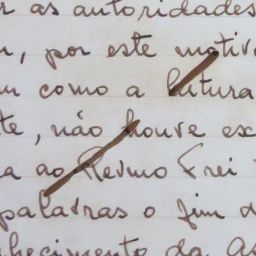 r as autoridades
, por este motiv
m como a lutura
te, não houve ex
a ao Revmo Frei
palavras o fim d
hecimento da as